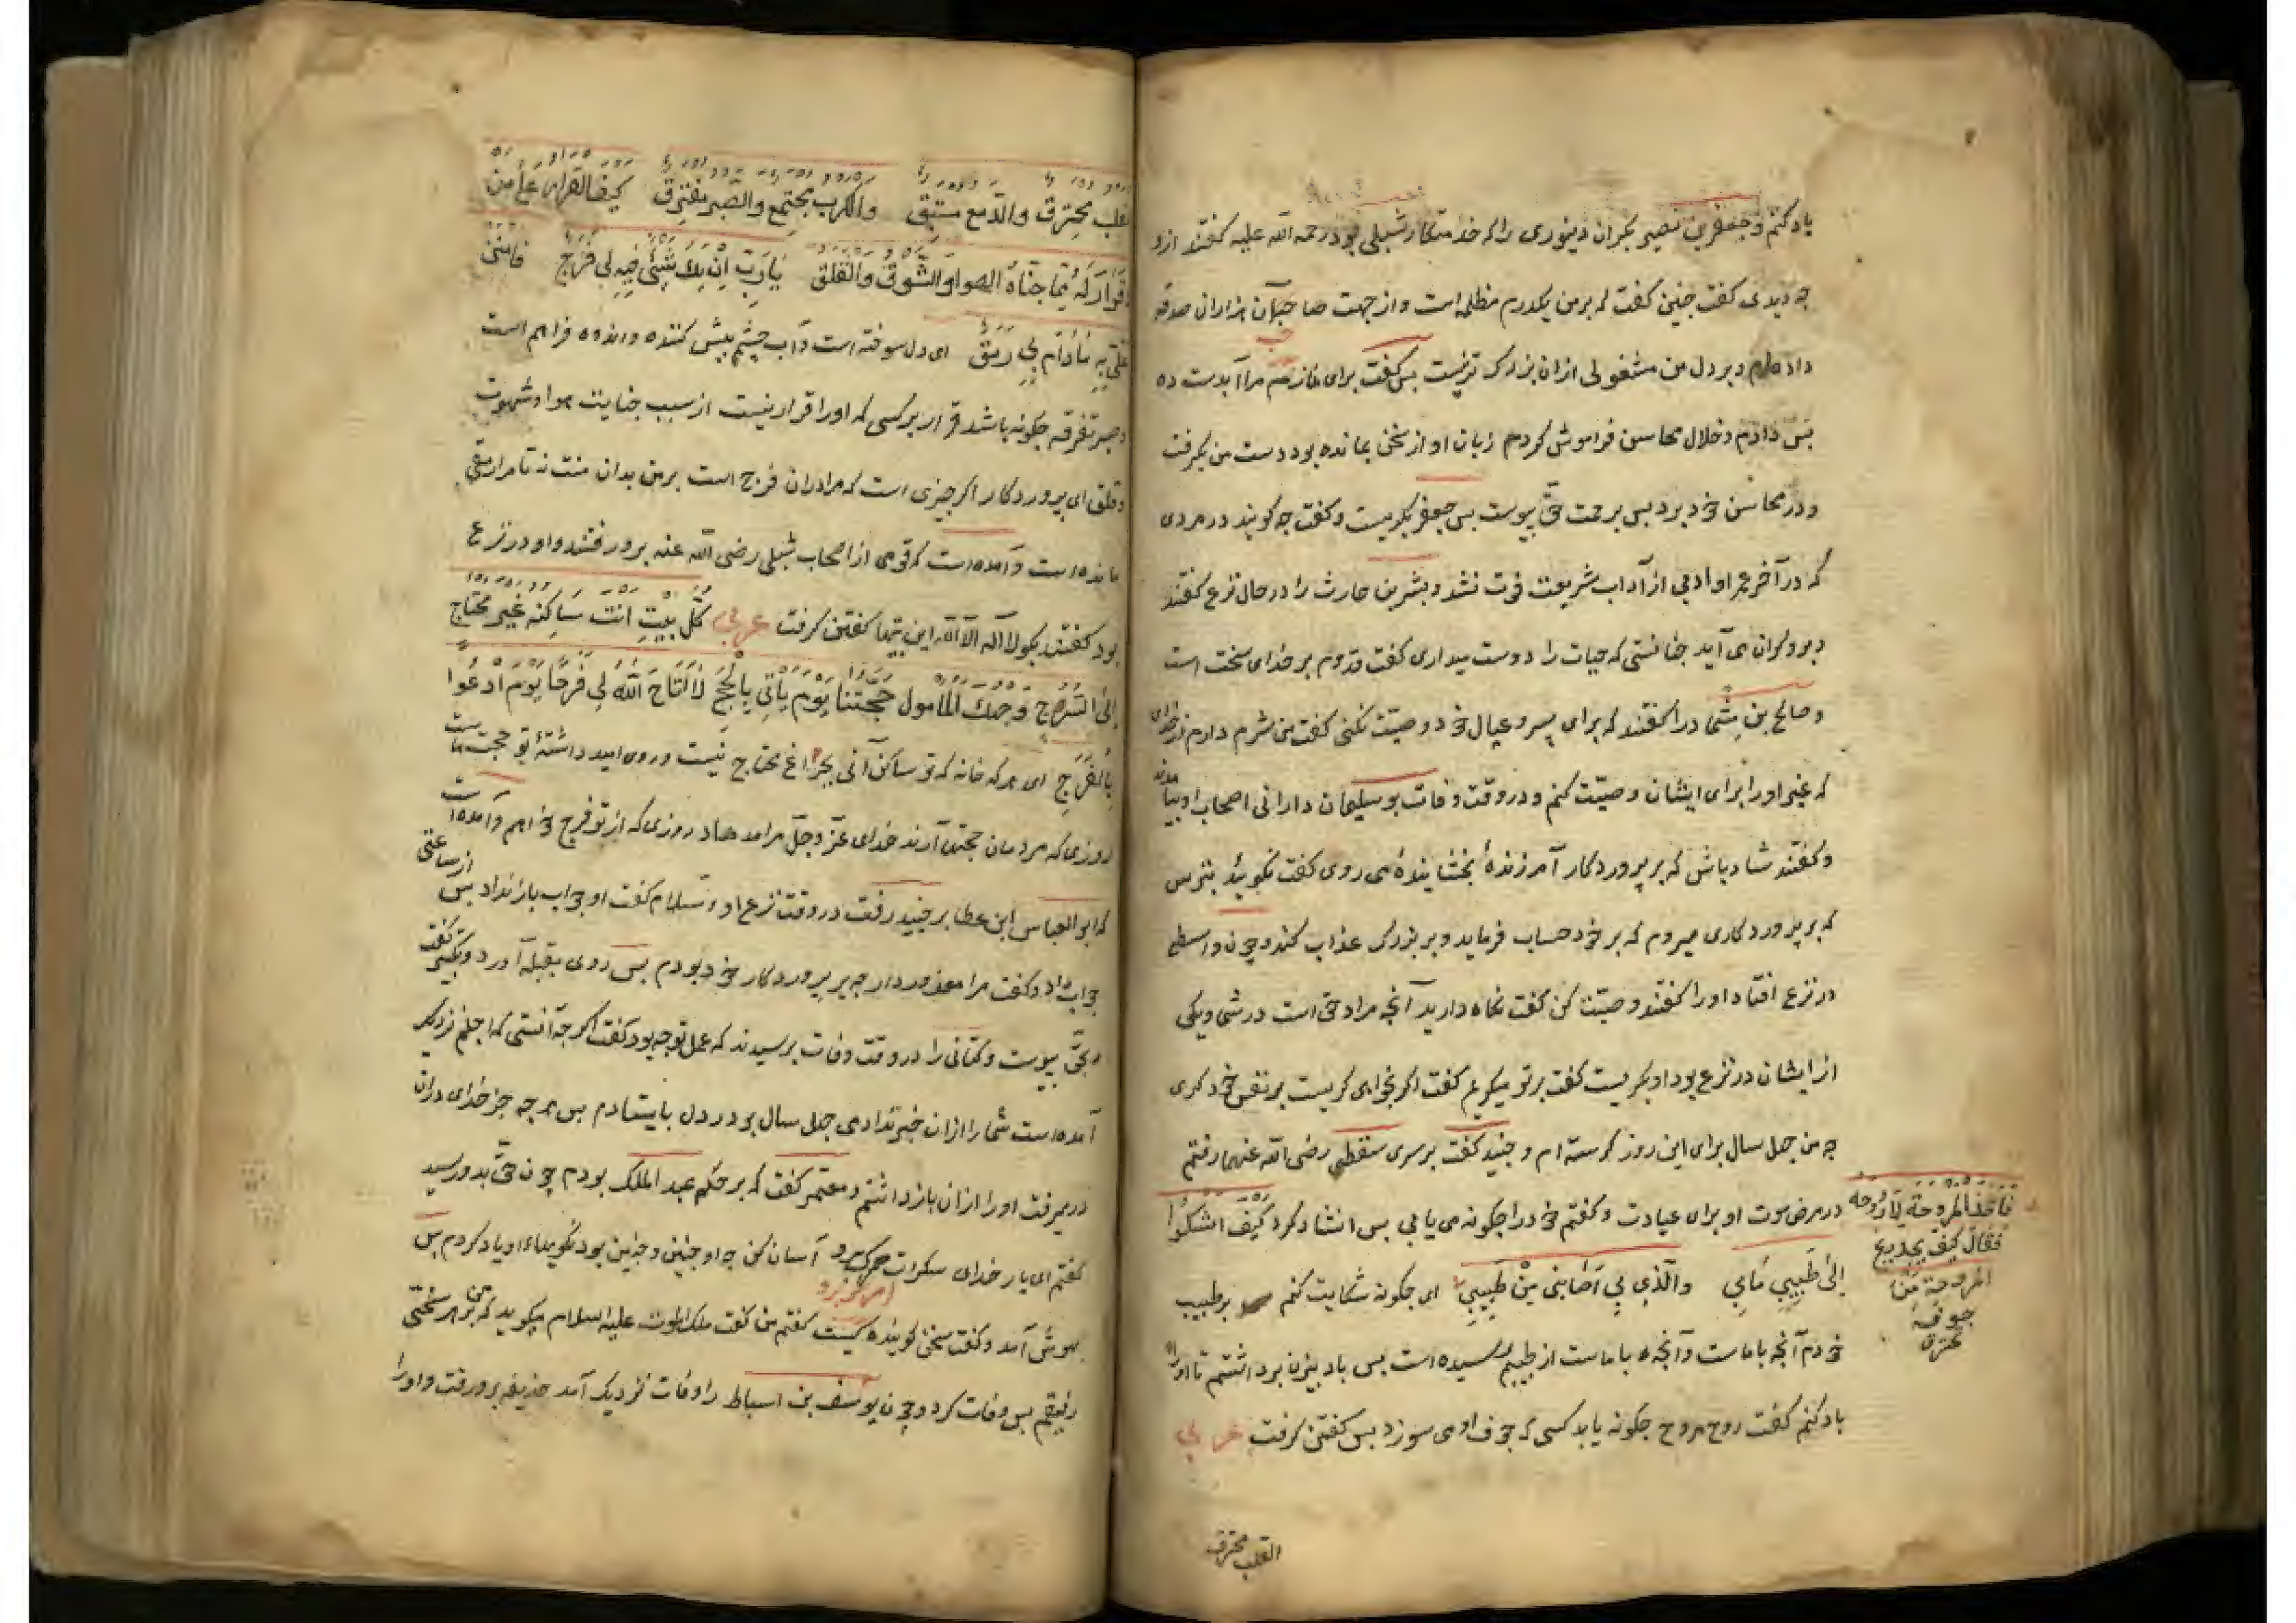 یاد کنم و جعفر بن نصیر بکران دینوری را که خدمتکار شبلی بود رحمه الله علیه گفتند ازو
چه دیدی گفت چنین گفت که بر من یکدرم مظلمه است و از جهت صاحب آن هزاران صدقه
داده ام و بر دل من مشغولی ازان بزرک تر نیست پس گفت برای نماز مرا آبدست ده
پس دادم و خلال محاسن فراموش کردم زبان او از سخن بمانده بود دست من بکرفت
و در محاسن خود برد پس برحمت حق پیوست پس جعفر بکریست و گفت چه کویند در مردی
که در آخر عمر او ادبی از آداب شریعت فوت نشد و بشر بن حارث را در حال نزع گفتند
و برو کران می آید چنانستی که حیات را دوست میداری گفت قدوم بر خدای سخت است
و صالح بن مسمار را گفتند که برای پسر و عیال خود وصیت نکنی گفت من شرم دارم از خدای
که غیر او را برای ایشان وصیت کنم و در وقت وفات بو سلیمان دارانی اصحاب او بیامدند
و گفتند شاد باش که بر پروردکار آمرزندهٔ بخشایندهٔ می روی گفت نکوئید بترس
که بر پروردکاری میروم که بر خرد حساب فرماید و بر بزرک عذاب کند و چون واسطی
در نزع افتاد او را گفتند وصیت کن گفت نکاه دارید آنچه مراد حق است در شما و یکی
از ایشان در نزع بود او بکریست گفت بر تو میکریم گفت اکر بخواهی کریست بر نفس خود کری
چه من چهل سال برای این روز کرسته ام و جنید گفت بر سری سقطی رضی الله عنهما رفتم
در مرض موت او برای عیادت و گفتم خود را چکونه می یابی پس انشاد کرد کَیفَ اَشکُوا
اِلیٰ طَبِیبِی مَابِی وَالَّذِی بِی اَصَابَنِی مِن طَبِیبِی ای چکونه شکایت کنم بر طبیب
خودم آنچه با ماست و آنچه با ماست از طبیبم رسیده است پس بادبیزن برداشتم تا او را
باد کنم گفت روح مروح چکونه یابد کسی که جوف او می سوزد پس گفتن کرفت عربی
فاخذ المروحة لاروحه
فقال کیف یجد ریح
المروحة من
جوفه
تحترق
القلب محترق
القلب محترق والدمع مستبق والکرب مجتمع والصبر مفترق کیف القرار علی من
لا قرار له مما جناه الهوا والشوق والقلق یا رب ان یک شیئ فیه لی فرج فامنن
علیّ به مادام بی رمق ای دل سوخته است و آب چشم پیش کننده و اندوه فراهم است
و صبر تفرقه چکونه باشد قرار بر کسی که او را قرار نیست از سبب جنایت هوا و شهوت
و قلق ای پروردکار اکر چیزی است که مرا دران فرج است بر من بدان منت نه تا مرا رمقی
مانده است و آمده است که قومی از اصحاب شبلی رضی الله عنه برو رفتند و او در نزع
بود گفتند بکو لا اله الا الله این بیتها گفتن کرفت عربی کل بیت انت ساکنه غیر محتاج
الی السرج وجهک المأمول حجتنا یوم یأتی بالحجج لا اتاح الله لی فرحا یوم ادعوا
بالفرج ای هر که خانه که تو ساکن آنی بچراغ محتاج نیست و روی امید داشتهٔ تو حجت ماست
روزی که مردمان حجتها آرند خدای عز و جل مرا مدهاد روزی که از تو فرج خواهم و آمده است
که ابو العباس ابن عطا بر جنید رفت در وقت نزع او و سلام گفت او جواب باز نداد پس از ساعتی
جواب داد و گفت مرا معذور دار چه بر پروردکار خود بودم پس روی بقبله آورد و تکبیر گفت
و بحق پیوست و کتانی را در وقت وفات پرسیدند که عمل تو چه بود گفت اکر چه آنستی که اجلم نزدیک
آمده است شما را ازان خبر ندادمی چهل سال بر در دل بایستادم پس هر چه جز خدای دران
در میرفت او را ازان بازداشتم و معتمر گفت که بر حکم عبد الملک بودم چون حق بدو رسید
گفتم ای بار خدای سکرات مرک برو آسان کن چه او چنین و چنین بود نکوییهاء او یاد کردم پس
بهوش آمد و گفت سخن کوینده کیست گفتم من گفت ملک الموت علیه السلام میکوید که من بر هر سختی
رفیقم پس وفات کرد و چون یوسف بن اسباط را وفات نزدیک آمد حذیفه برو رفت و او را